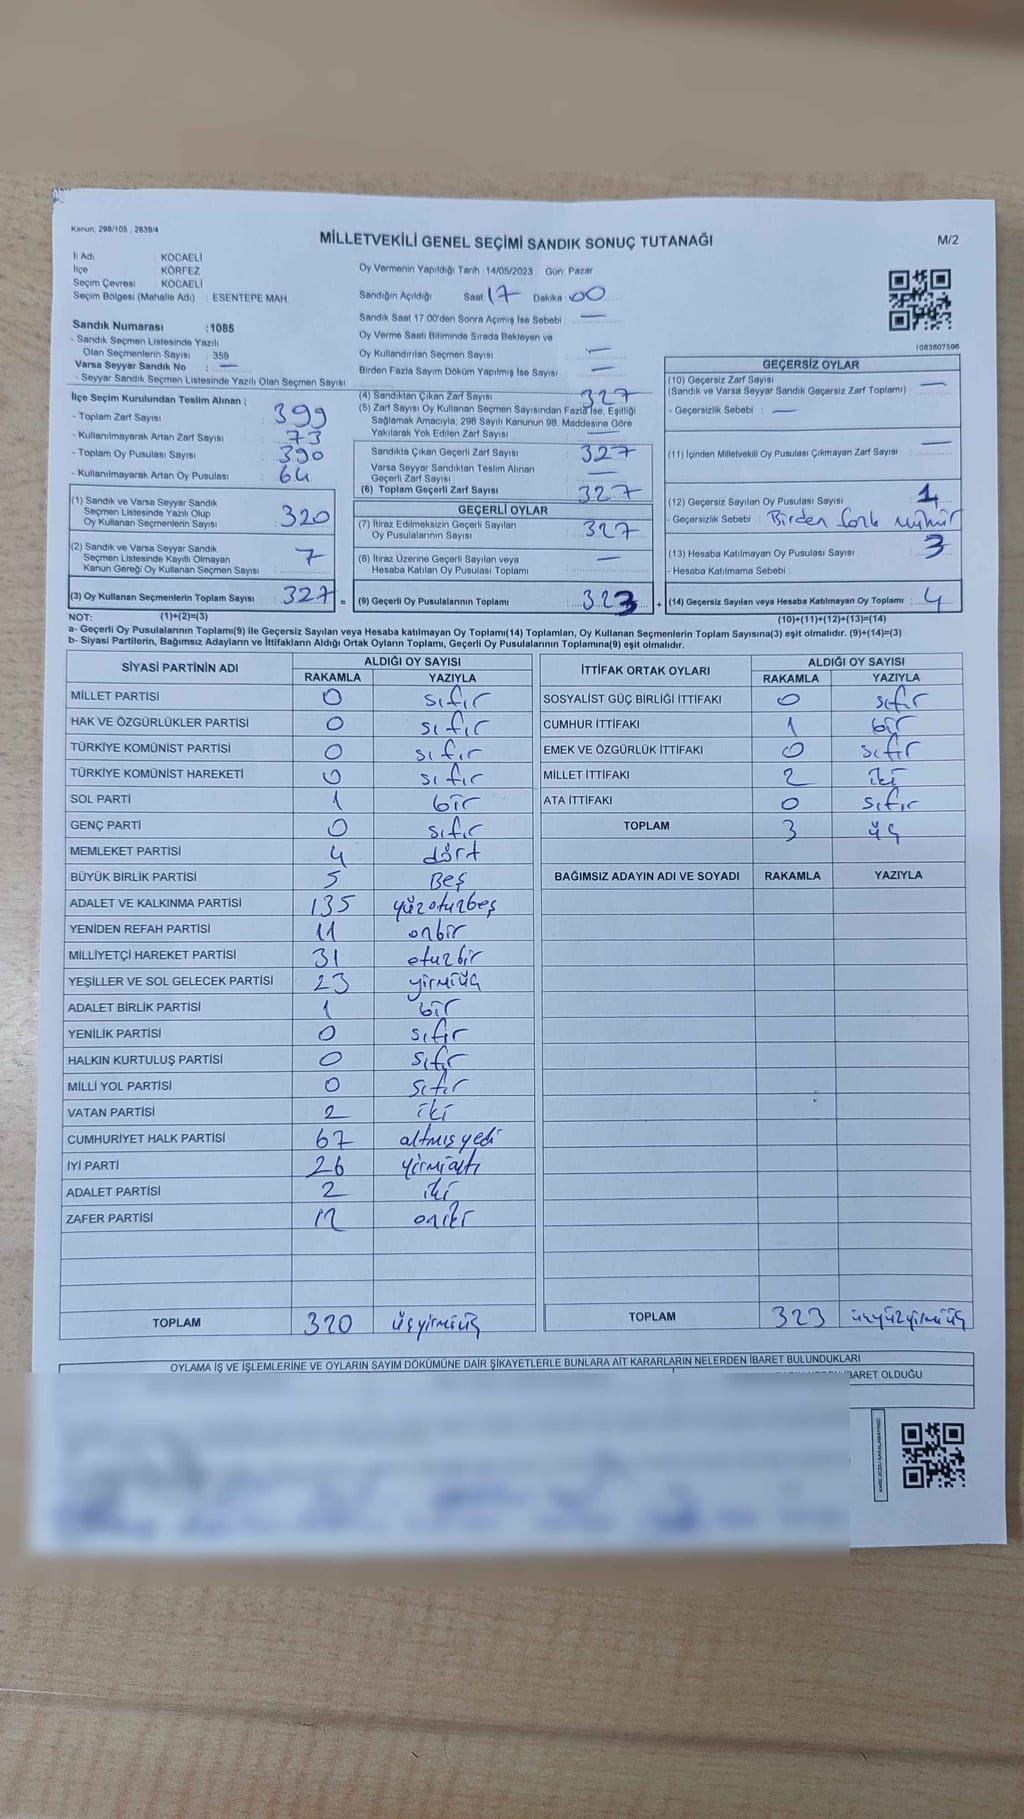 Kanun, 298/105 , 2839/4
MİLLETVEKİLİ GENEL SEÇİMİ SANDIK SONUÇ TUTANAĞI
M/2
İl Adı : KOCAELİ
İlçe : KÖRFEZ
Seçim Çevresi : KOCAELİ
Seçim Bölgesi (Mahalle Adı) : ESENTEPE MAH.
Sandık Numarası :1085
- Sandık Seçmen Listesinde Yazılı
Olan Seçmenlerin Sayısı : 359
Varsa Seyyar Sandık No : —
- Seyyar Sandık Seçmen Listesinde Yazılı Olan Seçmen Sayısı:
Oy Vermenin Yapıldığı Tarih :14/05/2023 Gün: Pazar
Sandığın Açıldığı Saat: 17 Dakika: 00
Sandık Saat 17.00'den Sonra Açımış İse Sebebi : —
Oy Verme Saati Bitiminde Sırada Bekleyen ve
Oy Kullandırılan Seçmen Sayısı : —
Birden Fazla Sayım Döküm Yapılmış İse Sayısı : —
1083807596
İlçe Seçim Kurulundan Teslim Alınan ;
- Toplam Zarf Sayısı : 399
- Kullanılmayarak Artan Zarf Sayısı : 73
- Toplam Oy Pusulası Sayısı : 390
- Kullanılmayarak Artan Oy Pusulası : 64
(1) Sandık ve Varsa Seyyar Sandık
Seçmen Listesinde Yazılı Olup
Oy Kullanan Seçmenlerin Sayısı : 320
(2) Sandık ve Varsa Seyyar Sandık
Seçmen Listesinde Kayıtlı Olmayan
Kanun Gereği Oy Kullanan Seçmen Sayısı : 7
(3) Oy Kullanan Seçmenlerin Toplam Sayısı : 327 =
(4) Sandıktan Çıkan Zarf Sayısı : 327
(5) Zarf Sayısı Oy Kullanan Seçmen Sayısından Fazla İse, Eşitliği
Sağlamak Amacıyla; 298 Sayılı Kanunun 98. Maddesine Göre
Yakılarak Yok Edilen Zarf Sayısı : —
Sandıkta Çıkan Geçerli Zarf Sayısı : 327
Varsa Seyyar Sandıktan Teslim Alınan
Geçerli Zarf Sayısı : —
(6) Toplam Geçerli Zarf Sayısı : 327
GEÇERLİ OYLAR
(7) İtiraz Edilmeksizin Geçerli Sayılan
Oy Pusulalarının Sayısı : 327
(8) İtiraz Üzerine Geçerli Sayılan veya
Hesaba Katılan Oy Pusulası Toplamı : —
(9) Geçerli Oy Pusulalarının Toplamı : 323 +
GEÇERSİZ OYLAR
(10) Geçersiz Zarf Sayısı
(Sandık ve Varsa Seyyar Sandık Geçersiz Zarf Toplamı) : —
- Geçersizlik Sebebi : —
(11) İçinden Milletvekili Oy Pusulası Çıkmayan Zarf Sayısı : —
(12) Geçersiz Sayılan Oy Pusulası Sayısı : 1
- Geçersizlik Sebebi : Birden fazla mühür
(13) Hesaba Katılmayan Oy Pusulası Sayısı : 3
- Hesaba Katılmama Sebebi :
(14) Geçersiz Sayılan veya Hesaba Katılmayan Oy Toplamı : 4
NOT: (1)+(2)=(3) (10)+(11)+(12)+(13)=(14)
a- Geçerli Oy Pusulalarının Toplamı(9) ile Geçersiz Sayılan veya Hesaba katılmayan Oy Toplamı(14) Toplamları, Oy Kullanan Seçmenlerin Toplam Sayısına(3) eşit olmalıdır. (9)+(14)=(3)
b- Siyasi Partilerin, Bağımsız Adayların ve İttifakların Aldığı Ortak Oyların Toplamı, Geçerli Oy Pusulalarının Toplamına(9) eşit olmalıdır.
SİYASİ PARTİNİN ADI ALDIĞI OY SAYISI
RAKAMLA YAZIYLA
MİLLET PARTİSİ 0 sıfır
HAK VE ÖZGÜRLÜKLER PARTİSİ 0 sıfır
TÜRKİYE KOMÜNİST PARTİSİ 0 sıfır
TÜRKİYE KOMÜNİST HAREKETİ 0 sıfır
SOL PARTİ 1 bir
GENÇ PARTİ 0 sıfır
MEMLEKET PARTİSİ 4 dört
BÜYÜK BİRLİK PARTİSİ 5 Beş
ADALET VE KALKINMA PARTİSİ 135 yüzotuzbeş
YENİDEN REFAH PARTİSİ 11 onbir
MİLLİYETÇİ HAREKET PARTİSİ 31 otuzbir
YEŞİLLER VE SOL GELECEK PARTİSİ 23 yirmiüç
ADALET BİRLİK PARTİSİ 1 bir
YENİLİK PARTİSİ 0 sıfır
HALKIN KURTULUŞ PARTİSİ 0 sıfır
MİLLİ YOL PARTİSİ 0 sıfır
VATAN PARTİSİ 2 iki
CUMHURİYET HALK PARTİSİ 67 altmışyedi
İYİ PARTİ 26 yirmialtı
ADALET PARTİSİ 2 iki
ZAFER PARTİSİ 12 oniki
TOPLAM 320 üçyirmiüç
İTTİFAK ORTAK OYLARI ALDIĞI OY SAYISI
RAKAMLA YAZIYLA
SOSYALİST GÜÇ BİRLİĞİ İTTİFAKI 0 sıfır
CUMHUR İTTİFAKI 1 bir
EMEK VE ÖZGÜRLÜK İTTİFAKI 0 sıfır
MİLLET İTTİFAKI 2 iki
ATA İTTİFAKI 0 sıfır
TOPLAM 3 üç
BAĞIMSIZ ADAYIN ADI VE SOYADI RAKAMLA YAZIYLA
TOPLAM 323 üçyüzyirmiüç
OYLAMA İŞ VE İŞLEMLERİNE VE OYLARIN SAYIM DÖKÜMÜNE DAİR ŞİKAYETLERLE BUNLARA AİT KARARLARIN NELERDEN İBARET BULUNDUKLARI
İBARET OLDUĞU